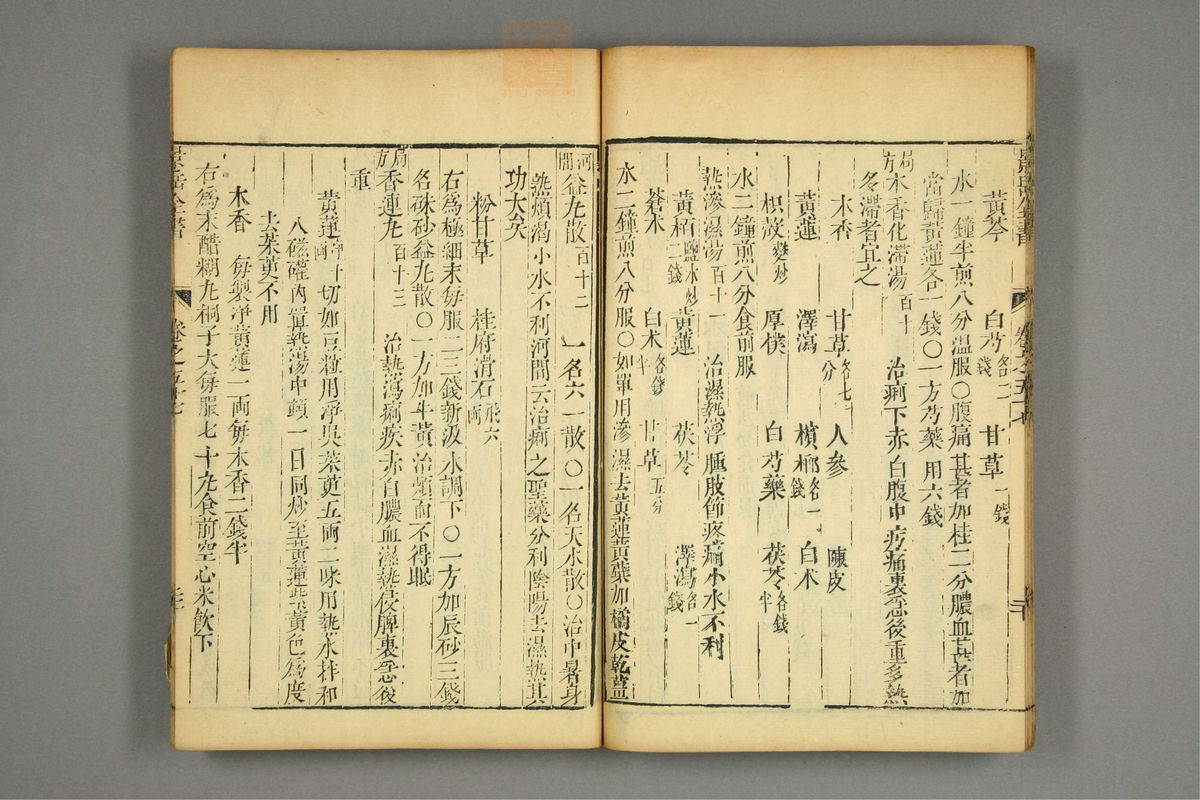 黃芩 白芍各二錢 甘草一錢
水一鐘半煎八分溫服〇腹痛甚者加桂二分膿血甚者加
當歸黃連各一錢〇一方芍藥用六錢
局方木香化滯湯百十 治痢下赤白腹中㽲痛裏急後重多熱
多滯者宜之
木香 甘草各七分 人參 陳皮
黃連 澤瀉 檳榔各一錢 白术
枳殼麩炒 厚樸 白芍藥 茯苓各錢半
水二鐘煎八分食前服
熱滲濕湯百十一 治濕熱浮腫肢節疼痛小水不利
黃栢鹽水炒二錢 黃連 茯苓 澤瀉各一錢
蒼术 白术各錢半 甘草五分
水二鐘煎八分服〇如單用滲濕去黃連黃蘗加橘皮乾薑
河間益九散百十二 一名六一散〇一名天水散〇治中暑身
熱煩渴小水不利河間云治痢之聖藥分利陰陽去濕熱其
功大矣
粉甘草一兩 桂府滑石飛六兩
右為極細末每服二三錢新汲水調下〇一方加辰砂三錢
名硃砂益九散〇一方加牛黃治煩而不得眠
局方香連丸百十三 治熱瀉痢疾赤白膿血濕熱侵脾裏急後
重
黃連淨十兩切如豆粒用淨吳茱萸五兩二味用熱水拌和
入磁礶內置熱湯中頓一日同炒至黃連紫黃色為度
去茱萸不用
木香 每製淨黃蓮一兩每木香二錢半
右為末醋糊丸桐子大每服七十丸食前空心米飲下